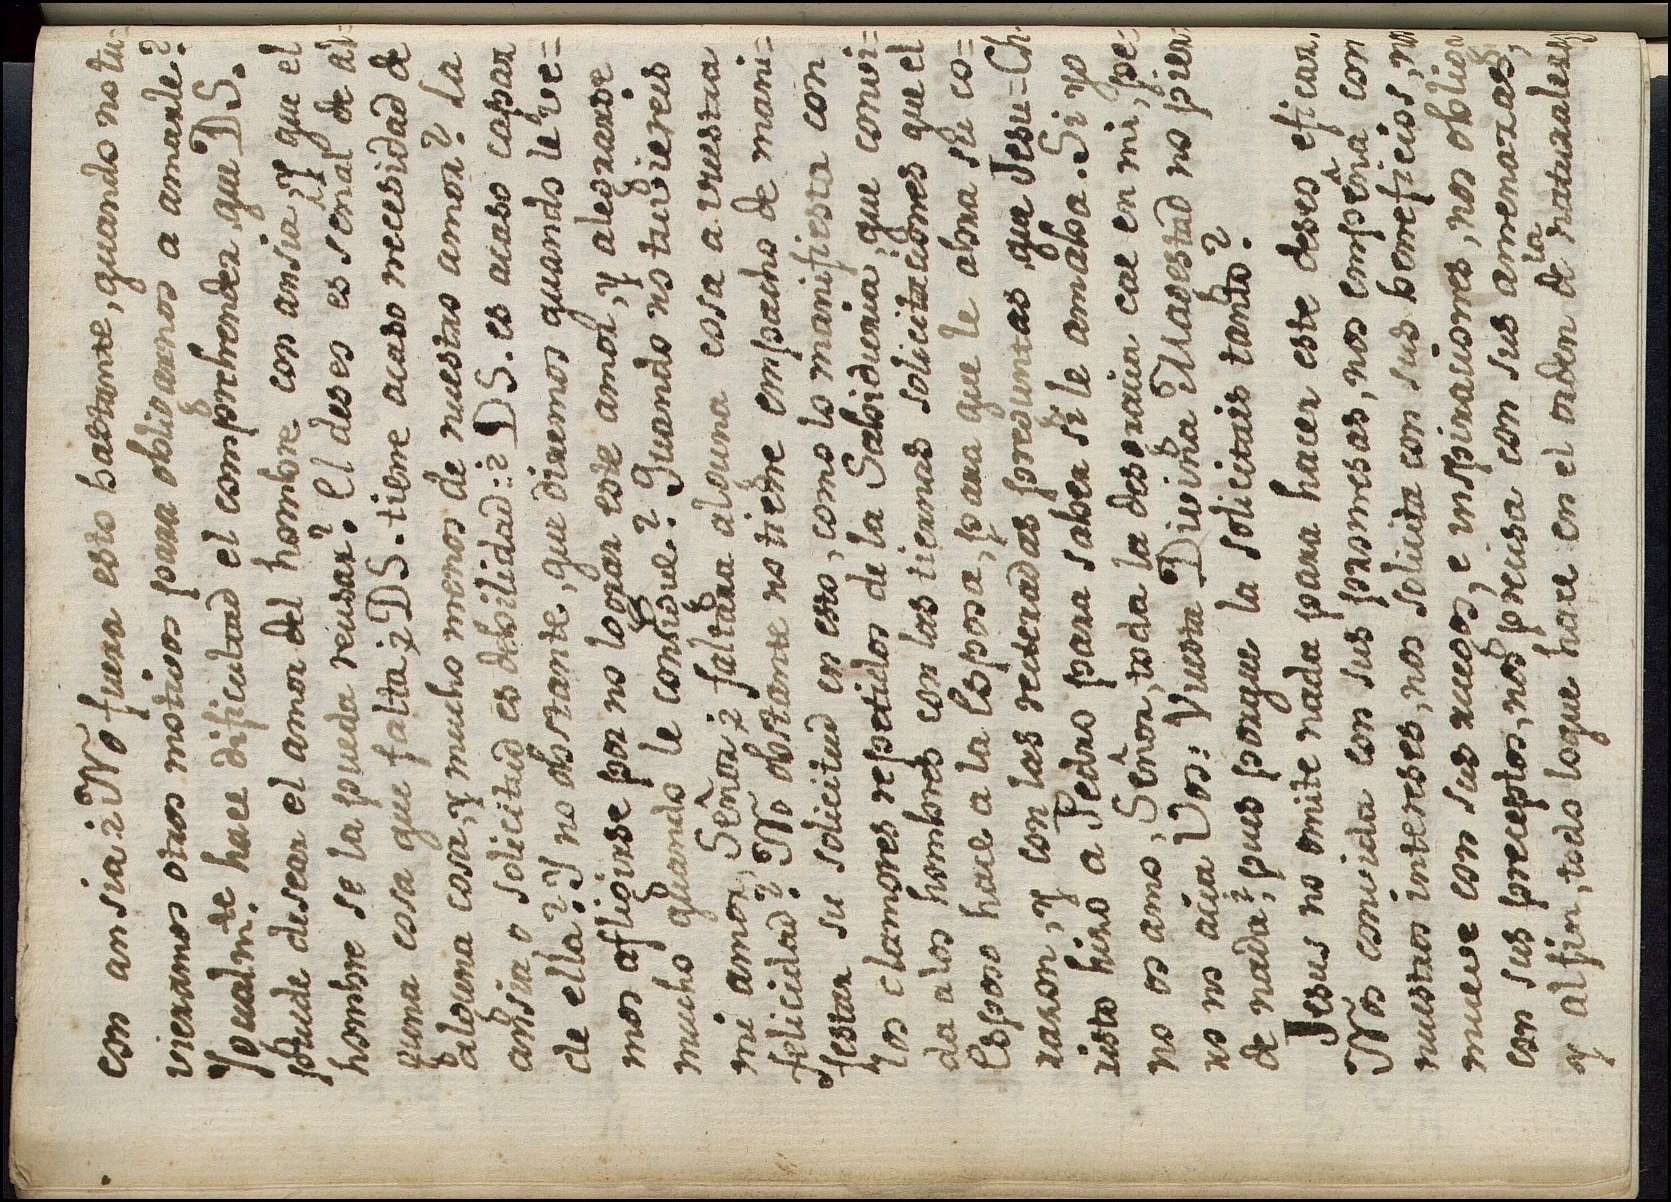 con ansia? No fuera esto bastante, quando no tu=
vieramos otros motivos para obligarnos a amarle?
Igualm.te hace dificultad el comprehender, que DS.
pude desear el amor del hombre con ansia, y que el
hombre se la pueda reusar? El deseo es señal de al=
guna cosa que falta; DS. tiene acaso necesidad de
alguna cosa, y mucho menos de nuestro amor? La
ansia, o solicitud es debilidad: DS. es acaso capaz
de ella? Y no obstante, que diremos quando le ve=
mos afligirse por no lograr este amor, y alegrarse
mucho quando le consigue? Quando no tuviereis
mi amor, Señor, faltara alguna cosa a vuestra
felicidad? No obstante no tiene empacho de mani=
festar su solicitud en esto, como lo manifiesta con
los clamores repetidos de la Sabiduria, que convi=
da a los hombres con las tiernas solicitaciones que el
Esposo hace a la Esposa, para que le abra su co=
razon, y con las reiteradas preguntas que Jesu=Ch
risto hizo a Pedro para saber si le amaba. Si yo
no os amo, Señor, toda la desgracia cae en mi, pe=
ro no acia Vos: Vuestra Divina Magestad no pier
de nada; pues porque la solicitais tanto?
Jesus no omite nada para hacer este deseo eficaz.
Nos convida con sus promesas, nos empeña con
nuestros intereses, nos solicita con sus beneficios, nos
mueve con sus ruegos, e inspiraciones, nos obliga
con sus preceptos, nos precisa con sus amenazas,
y al fin, todo loque hace en el orden de la naturaleza